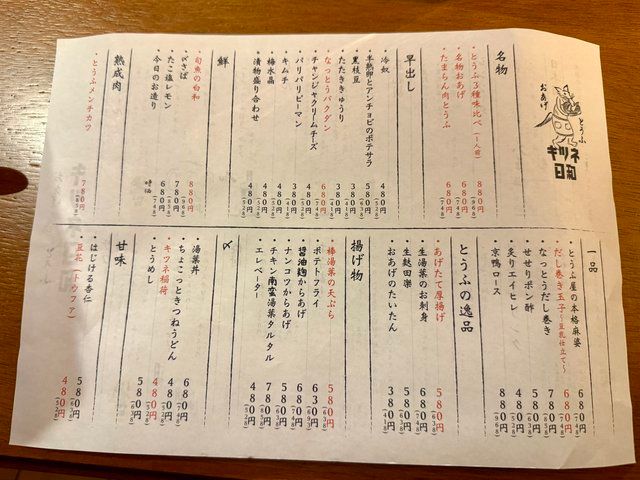 おあげ
とうふ
キツネ
日和
名物
・とうふ3種味比べ(1人前) 880円(968)
・名物おあげ 680円(748)
・たまらん肉とうふ 680円(748)
早出し
・冷奴 480円(528)
・半熟卵とアンチョビのポテサラ 580円(638)
・黒枝豆 380円(418)
・たたききゅうり 380円(418)
・なっとうバクダン 680円(748)
・チャンジャクリームチーズ 480円(528)
・パリパリピーマン 480円(528)
・キムチ 480円(528)
・梅水晶 480円(528)
・漬物盛り合わせ 480円(528)
鮮
・旬魚の白和 880円(968)
・〆さば 780円(858)
・たこ塩レモン 680円(748)
・今日のお造り 時価
熟成肉
・とうふメンチカツ 780円(858)
一品
・とうふ屋の本格麻婆 680円(748)
・だし巻き玉子~豆乳仕立て~ 680円(748)
・なっとうだし巻き 780円(858)
・せせりポン酢 580円(638)
・炙りエイヒレ 480円(528)
・京鴨ロース 880円(968)
とうふの逸品
・あげたて厚揚げ 580円(638)
・生湯葉のお刺身 680円(748)
・生麩田楽 580円(638)
・おあげのたいたん 380円(418)
揚げ物
・棒湯葉の天ぷら 580円(638)
・ポテトフライ 630円(693)
・醤油麹からあげ 680円(748)
・ナンコツからあげ 580円(638)
・チキン南蛮湯葉タルタル 780円(858)
・エレベーター 480円(528)
〆
・湯葉丼 680円(748)
・ちょこっときつねうどん 480円(528)
・キツネ稲荷 480円(528)
・とうめし 580円(638)
甘味
・はじける杏仁 580円(638)
・豆花(トウファ) 480円(528)